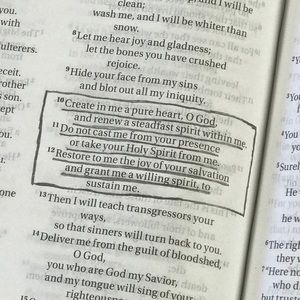 you.
with
ulterers.
eceit.
other
s son.
ept
you.
one
clean;
wash me, and I will be whiter than
snow.
8 Let me hear joy and gladness;
let the bones you have crushed
rejoice.
9 Hide your face from my sins
and blot out all my iniquity.
10 Create in me a pure heart, O God,
and renew a steadfast spirit within me.
11 Do not cast me from your presence
or take your Holy Spirit from me.
12 Restore to me the joy of your salvation
and grant me a willing spirit, to
sustain me.
13 Then I will teach transgressors your
ways,
so that sinners will turn back to you.
14 Deliver me from the guilt of bloodshed,
O God,
you who are God my Savior,
and my tongue will sing of your
5 Surel
He
he w
6 The righ
they w
7 "Here no
who did